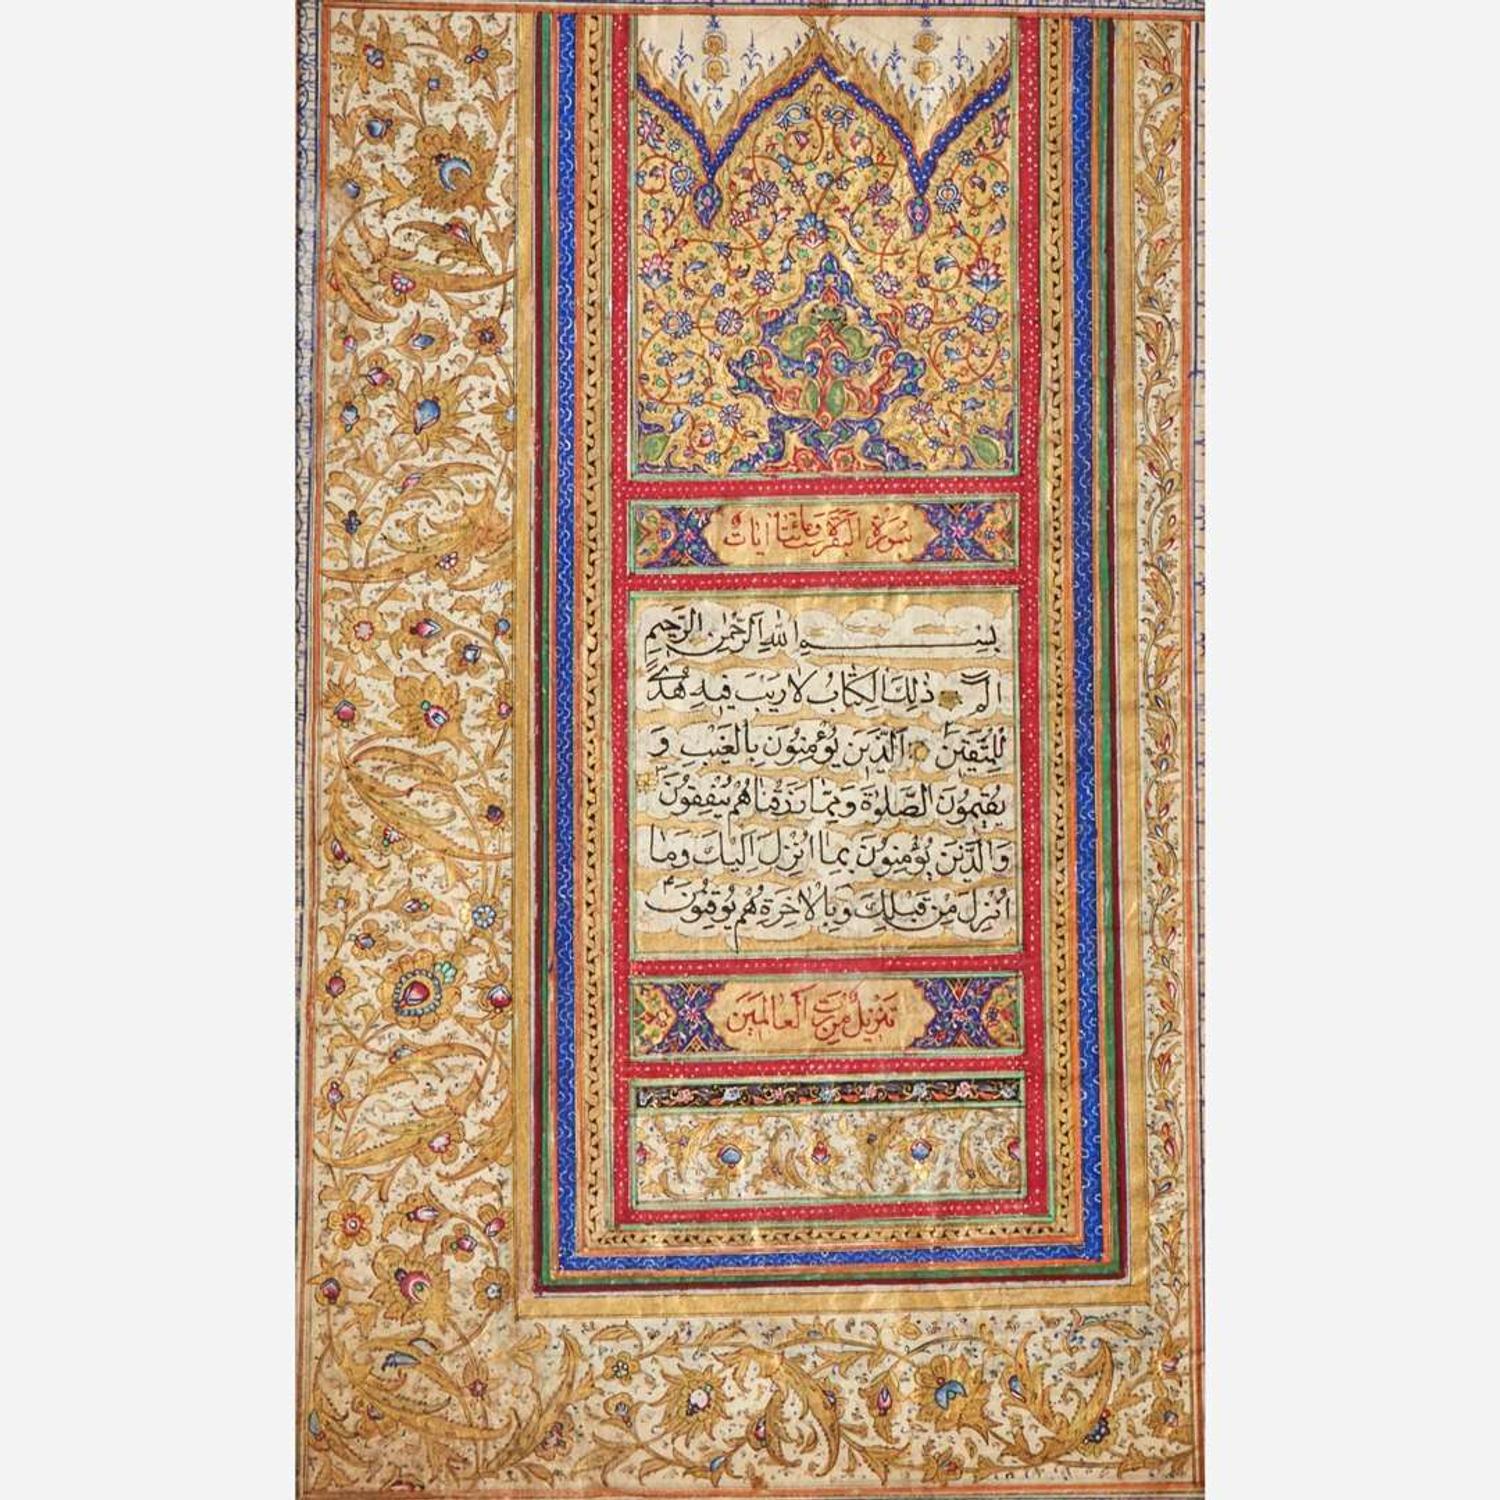 سورة البقرة مائتا آيات
بسم الله الرحمن الرحيم
الم ذٰلِكَ الْكِتَابُ لَا رَيْبَ فِيهِ هُدًى
لِلْمُتَّقِينَ الَّذِينَ يُؤْمِنُونَ بِالْغَيْبِ وَ
يُقِيمُونَ الصَّلٰوةَ وَمِمَّا رَزَقْنَاهُمْ يُنْفِقُونَ
وَالَّذِينَ يُؤْمِنُونَ بِمَا اُنْزِلَ اِلَيْكَ وَمَا
اُنْزِلَ مِنْ قَبْلِكَ وَبِالْاٰخِرَةِ هُمْ يُوقِنُونَ
تَنْزِيلٌ مِنْ رَبِّ الْعَالَمِينَ